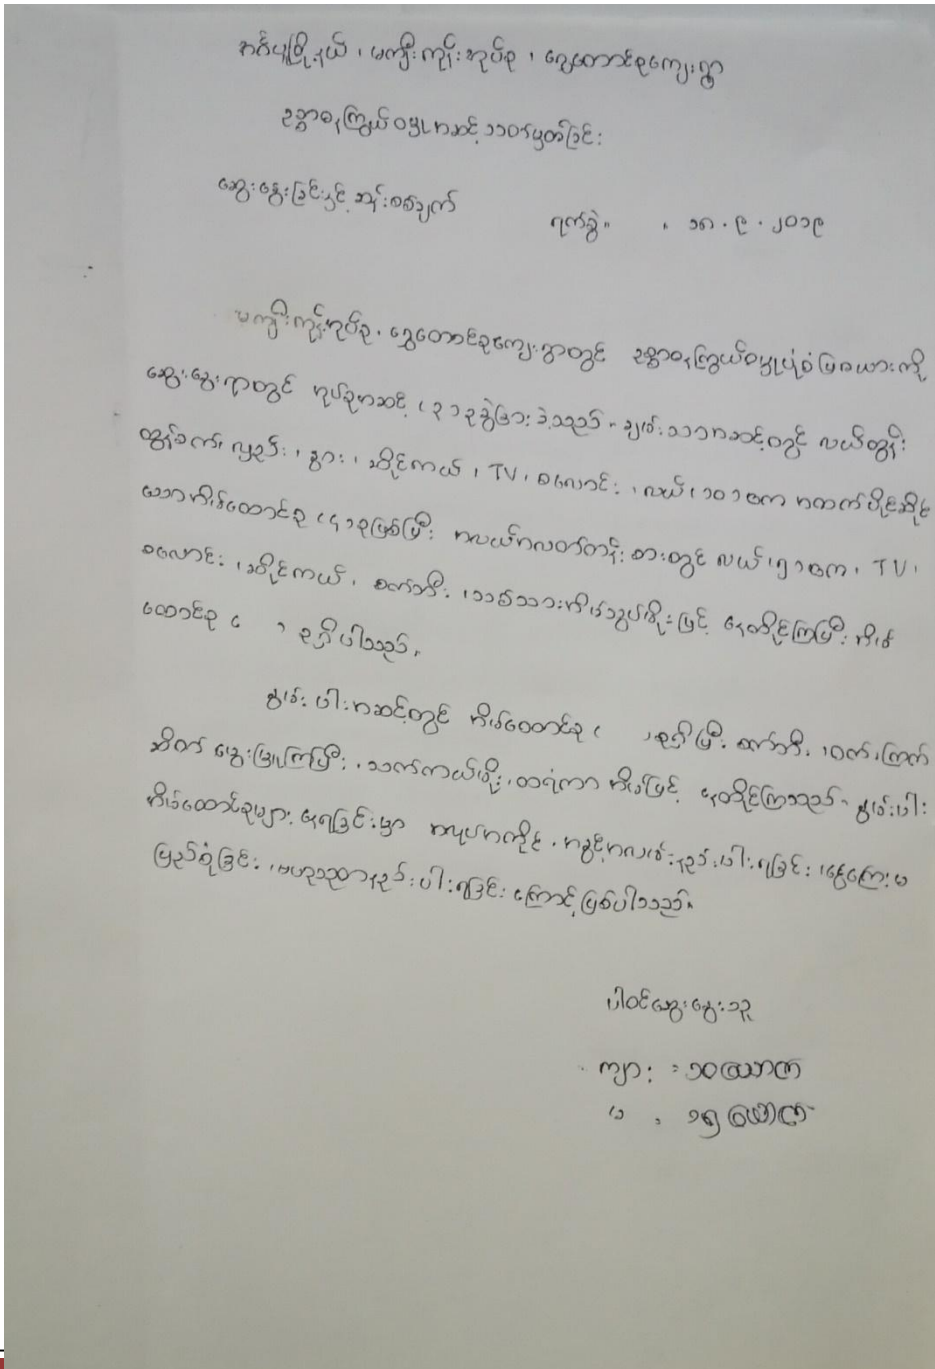 အင်္ဂပူမြို့နယ် ၊ မကျီးကုန်းအုပ်စု ၊ ရွှေတောင်စုကျေးရွာ
ဥစ္စာဓနကြွယ်ဝမှုအဆင့် သတ်မှတ်ခြင်း
ဆွေးနွေးခြင်းနှင့် ဆန်းစစ်ချက်
ရက်စွဲ။ ၁၈.၉.၂၀၁၉
မကျီးကုန်းအုပ်စု ၊ ရွှေတောင်စုကျေးရွာတွင် ဥစ္စာဓနကြွယ်ဝမှုပုံစံပြဇယားကို
ဆွေးနွေးရာတွင် အုပ်စုအဆင့် (၃)ခုခွဲခြားခဲ့သည်။ ချမ်းသာအဆင့်တွင် လယ်ထွန်
ထွန်စက်၊ လှည်း ၊ နွား ၊ ဆိုင်ကယ် ၊ TV ၊ စလောင်း ၊ လယ် (၁၀)ဧက အထက်ပိုင်ဆိုင်
သောအိမ်ထောင်စု (၄)စုဖြစ်ပြီး အလယ်အလတ်တန်းစားတွင် လယ်(၅)ဧက ၊ TV ၊
စလောင်း ၊ ဆိုင်ကယ် ၊ စက်ဘီး ၊ သစ်သားအိမ်သွပ်မိုးဖြင့် နေထိုင်ကြပြီး အိမ်
ထောင်စု ( ) စုရှိပါသည်။
နွမ်းပါးအဆင့်တွင် အိမ်ထောင်စု ( )စုရှိပြီး စက်ဘီး ၊ ဝက် ၊ ကြက်
ဆိတ် မွေးမြူကြပြီး ၊ သက်ကယ်မိုး ၊ ထရံကာ အိမ်ဖြင့် နေထိုင်ကြသည်။ နွမ်းပါး
အိမ်ထောင်စုများ နေရခြင်းမှာ အလုပ်အကိုင် ၊ အခွင့်အလမ်းနည်းပါးရခြင်း ၊ ငွေကြေးမ
ပြည့်စုံခြင်း ၊ ဗဟုသုတနည်းပါးရခြင်းကြောင့် ဖြစ်ပါသည်။
ပါဝင်ဆွေးနွေးသူ
ကျား = ၁၀ ယောက်
မ = ၁၅ ယောက်